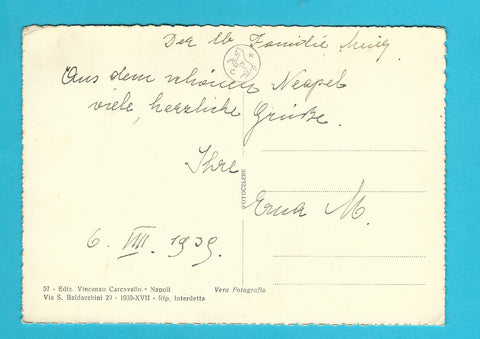 Der lb Familie
Aus dem schönen Neapel
viele, herzliche Grüße.
Ihre
Erna M.
6. VIII. 1939.
FOTOCELERE
57 - Ediz. Vincenzo Carcavallo - Napoli
Via S. Baldacchini 29 - 1939-XVII - Rip. interdetta
Vera Fotografia